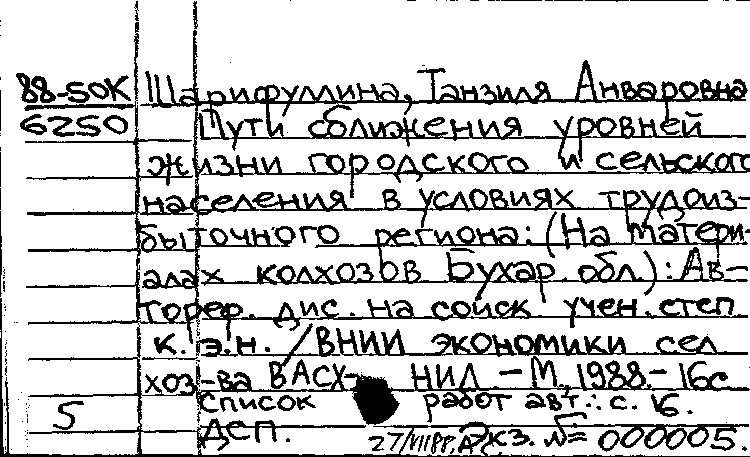 88-50К Шарифуллина, Танзиля Анваровна
6250 Пути сближения уровней
жизни городского и сельского
населения в условиях трудоиз-
быточного региона: (На матери-
алах колхозов Бухар. обл.): Ав-
тореф. дис. на соиск. учен. степ.
к. э. н. / ВНИИ экономики сел.
хоз-ва ВАСХ- НИЛ - М., 1988. - 16с
5 список работ авт.: с. 16.
ДСП. Экз. №= 000005.